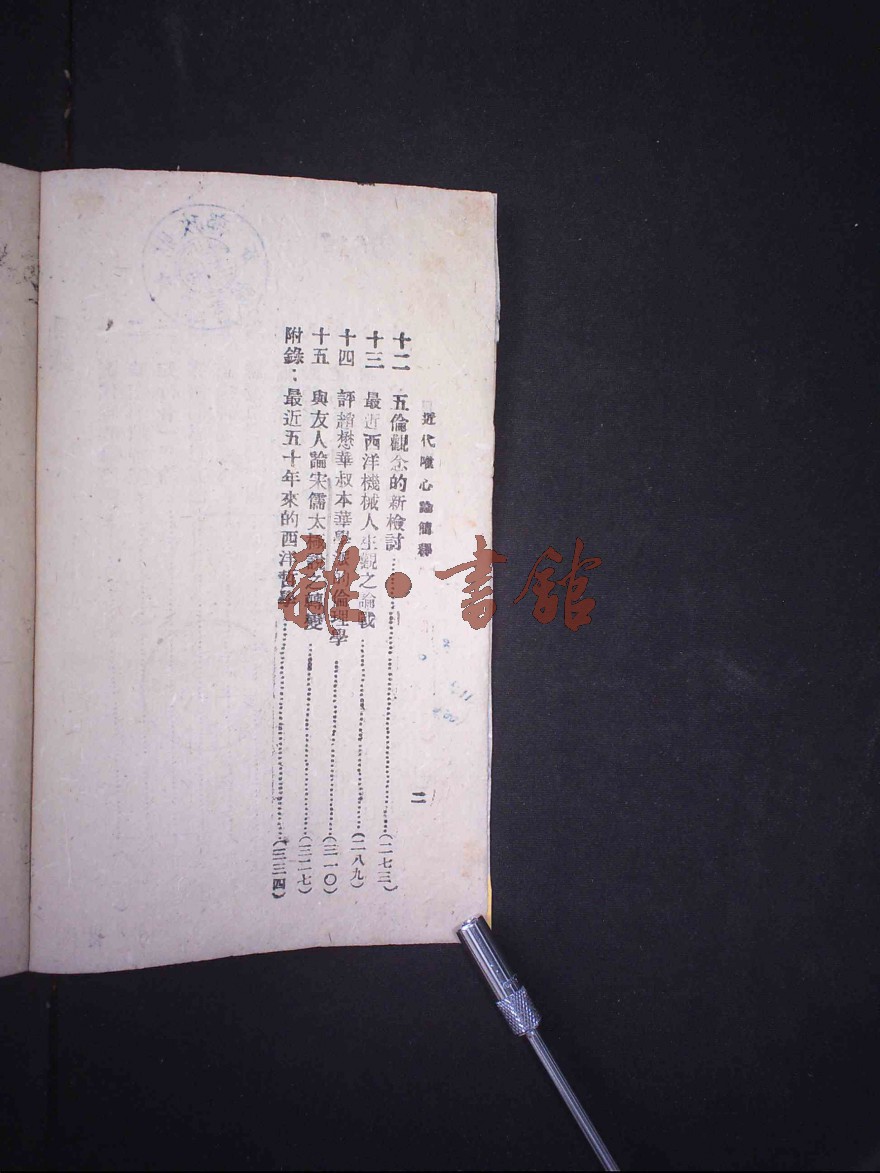 近代唯心論簡釋
二
十二 五倫觀念的新檢討……(二七三)
十三 最近西洋機械人生觀之論戰……(二八九)
十四 評趙懋華叔本華學派的倫理學……(三一〇)
十五 與友人論宋儒太極說之轉變……(三二七)
附錄：最近五十年來的西洋哲學……(三三四)
雜·書館